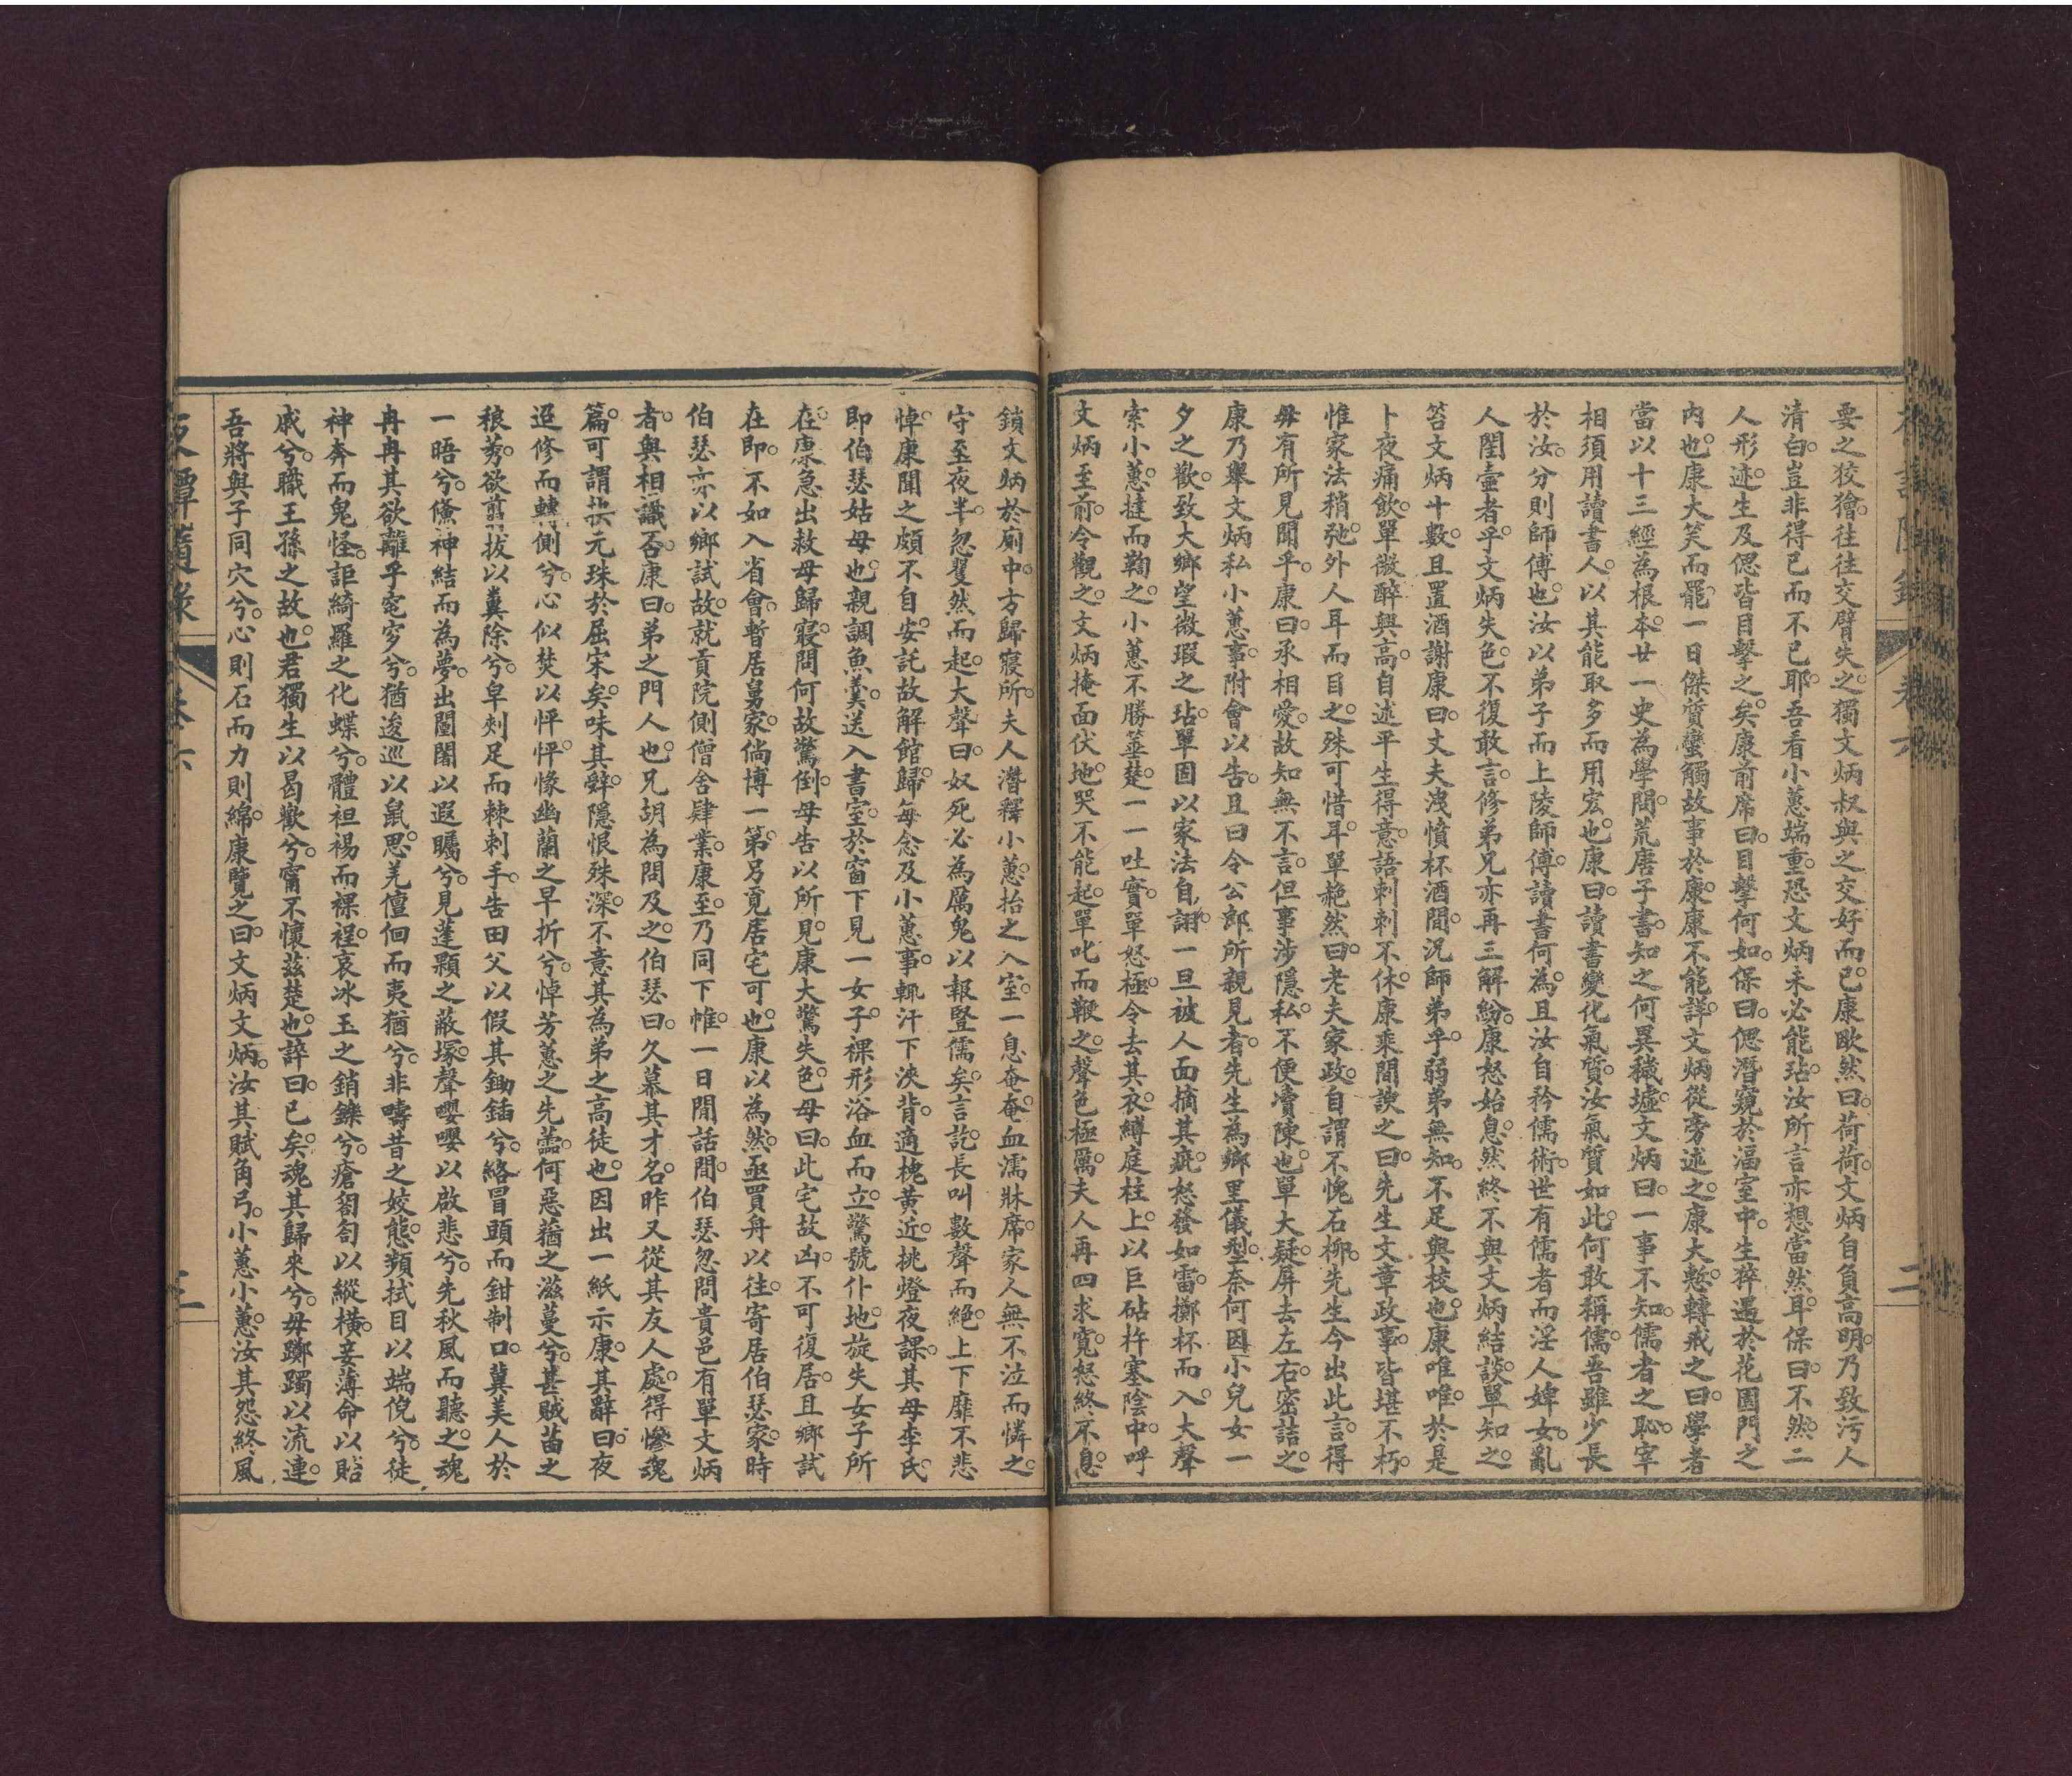 要之狡獪。往往交臂失之。獨文炳叔與之交好而已。康歐然曰。荷荷。文炳自負高明。乃致污人
清白。豈非得已而不已耶。吾看小蕙端重。恐文炳未必能玷。汝所言亦想當然耳。保曰。不然。二
人形迹。生及偲皆目擊之矣。康前席曰。目擊何如。保曰。偲潛窺於湢室中。生猝遇於花園門之
內也。康大笑而罷。一日傑質蠻觸故事於康。康不能詳。文炳從旁述之。康大慙。轉戒之曰。學者
當以十三經為根本。廿一史為學問。荒唐子書。知之何異穢墟。文炳曰。一事不知。儒者之恥。宰
相須用讀書人。以其能取多而用宏也。康曰。讀書變化氣質。汝氣質如此。何敢稱儒。吾雖少長
於汝。分則師傅也。汝以弟子而上陵師傅。讀書何為。且汝自矜儒術。世有儒者而淫人婢女。亂
人閨壼者乎。文炳失色。不復敢言。修弟兄亦再三解紛。康怒始息。然終不與文炳結談。單知之。
笞文炳十數。且置酒謝康曰。丈夫洩憤杯酒間。況師弟乎。弱弟無知。不足與校也。康唯唯。於是
卜夜痛飲。單微醉興高。自述平生得意。語刺刺不休。康乘間諛之曰。先生文章政事。皆堪不朽。
惟家法稍弛。外人耳而目之。殊可惜耳。單赩然曰。老夫家政。自謂不愧石柳。先生今出此言。得
毋有所見聞乎。康曰。承相愛。故知無不言。但事涉隱私。不便瀆陳也。單大疑。屏去左右。密詰之。
康乃舉文炳私小蕙事。附會以告。且曰。令公郎所親見者。先生為鄉里儀型。奈何因小兒女一
夕之歡。致大鄉望微瑕之玷。單固以家法自詡。一旦被人面摘其疵。怒發如雷。擲杯而入。大聲
索小蕙。撻而鞫之。小蕙不勝箠楚。一一吐實。單怒極。令去其衣。縛庭柱上。以巨砧杵塞陰中。呼
文炳至前。令觀之。文炳掩面伏地。哭不能起。單叱而鞭之。聲色極厲。夫人再四求寬。怒終不息。
鎖文炳於廁中。方歸寢所。夫人潛釋小蕙。抬之入室。一息奄奄。血濡牀席。家人無不泣而憐之。
守至夜半。忽矍然而起。大聲曰。奴死必為厲鬼以報豎儒矣。言訖。長叫數聲而絕。上下靡不悲
悼。康聞之。頗不自安。託故解館歸。每念及小蕙事。輒汗下浹背。適槐黃近。挑燈夜課。其母李氏。
即伯瑟姑母也。親調魚羹。送入書室。於窗下見一女子。裸形浴血而立。驚號仆地。旋失女子所
在。康急出救母歸寢。問何故驚倒。母告以所見。康大驚失色。母曰。此宅故凶。不可復居。且鄉試
在即。不如入省會。暫居舅家。倘博一第。另覓居宅可也。康以為然。亟買舟以往。寄居伯瑟家。時
伯瑟亦以鄉試故。就貢院側僧舍肄業。康至。乃同下帷。一日閒話間。伯瑟忽問貴邑有單文炳
者。與相識否。康曰。弟之門人也。兄胡為問及之。伯瑟曰。久慕其才名。昨又從其友人處。得慘魂
篇。可謂拔元珠於屈宋矣。味其辭。隱恨殊深。不意其為弟之高徒也。因出一紙示康。其辭曰。夜
迢修而轉側兮。心似焚以怦怦。愫幽蘭之早折兮。悼芳蕙之先蠹。何惡蕕之滋蔓兮。甚賊苗之
稂莠。欲剪拔以糞除兮。卑剡足而棘刺手。告田父以假其鋤鍤兮。絡冒頭而鉗制口。冀美人於
一晤兮。儵神結而為夢。出闉闍以遐矚兮。見蓬顆之蔽塚。聲嚶嚶以啟悲兮。先秋風而聽之。魂
冉冉其欲離乎窀穸兮。猶逡巡以鼠思。羌儃佪而夷猶兮。非疇昔之姣態。頻拭目以端倪兮。徒
神奔而鬼怪。詎綺羅之化蝶兮。體袒裼而裸裎。哀冰玉之銷鑠兮。瘡匌匌以縱橫。妾薄命以貽
戚兮。職王孫之故也。君獨生以曷歡兮。甯不懷茲楚也。誶曰。已矣。魂其歸來兮。毋躑躅以流連。
吾將與子同穴兮。心則石而力則綿。康覽之曰。文炳文炳。汝其賦角弓。小蕙小蕙。汝其怨終風
卷六
二
卷六
三